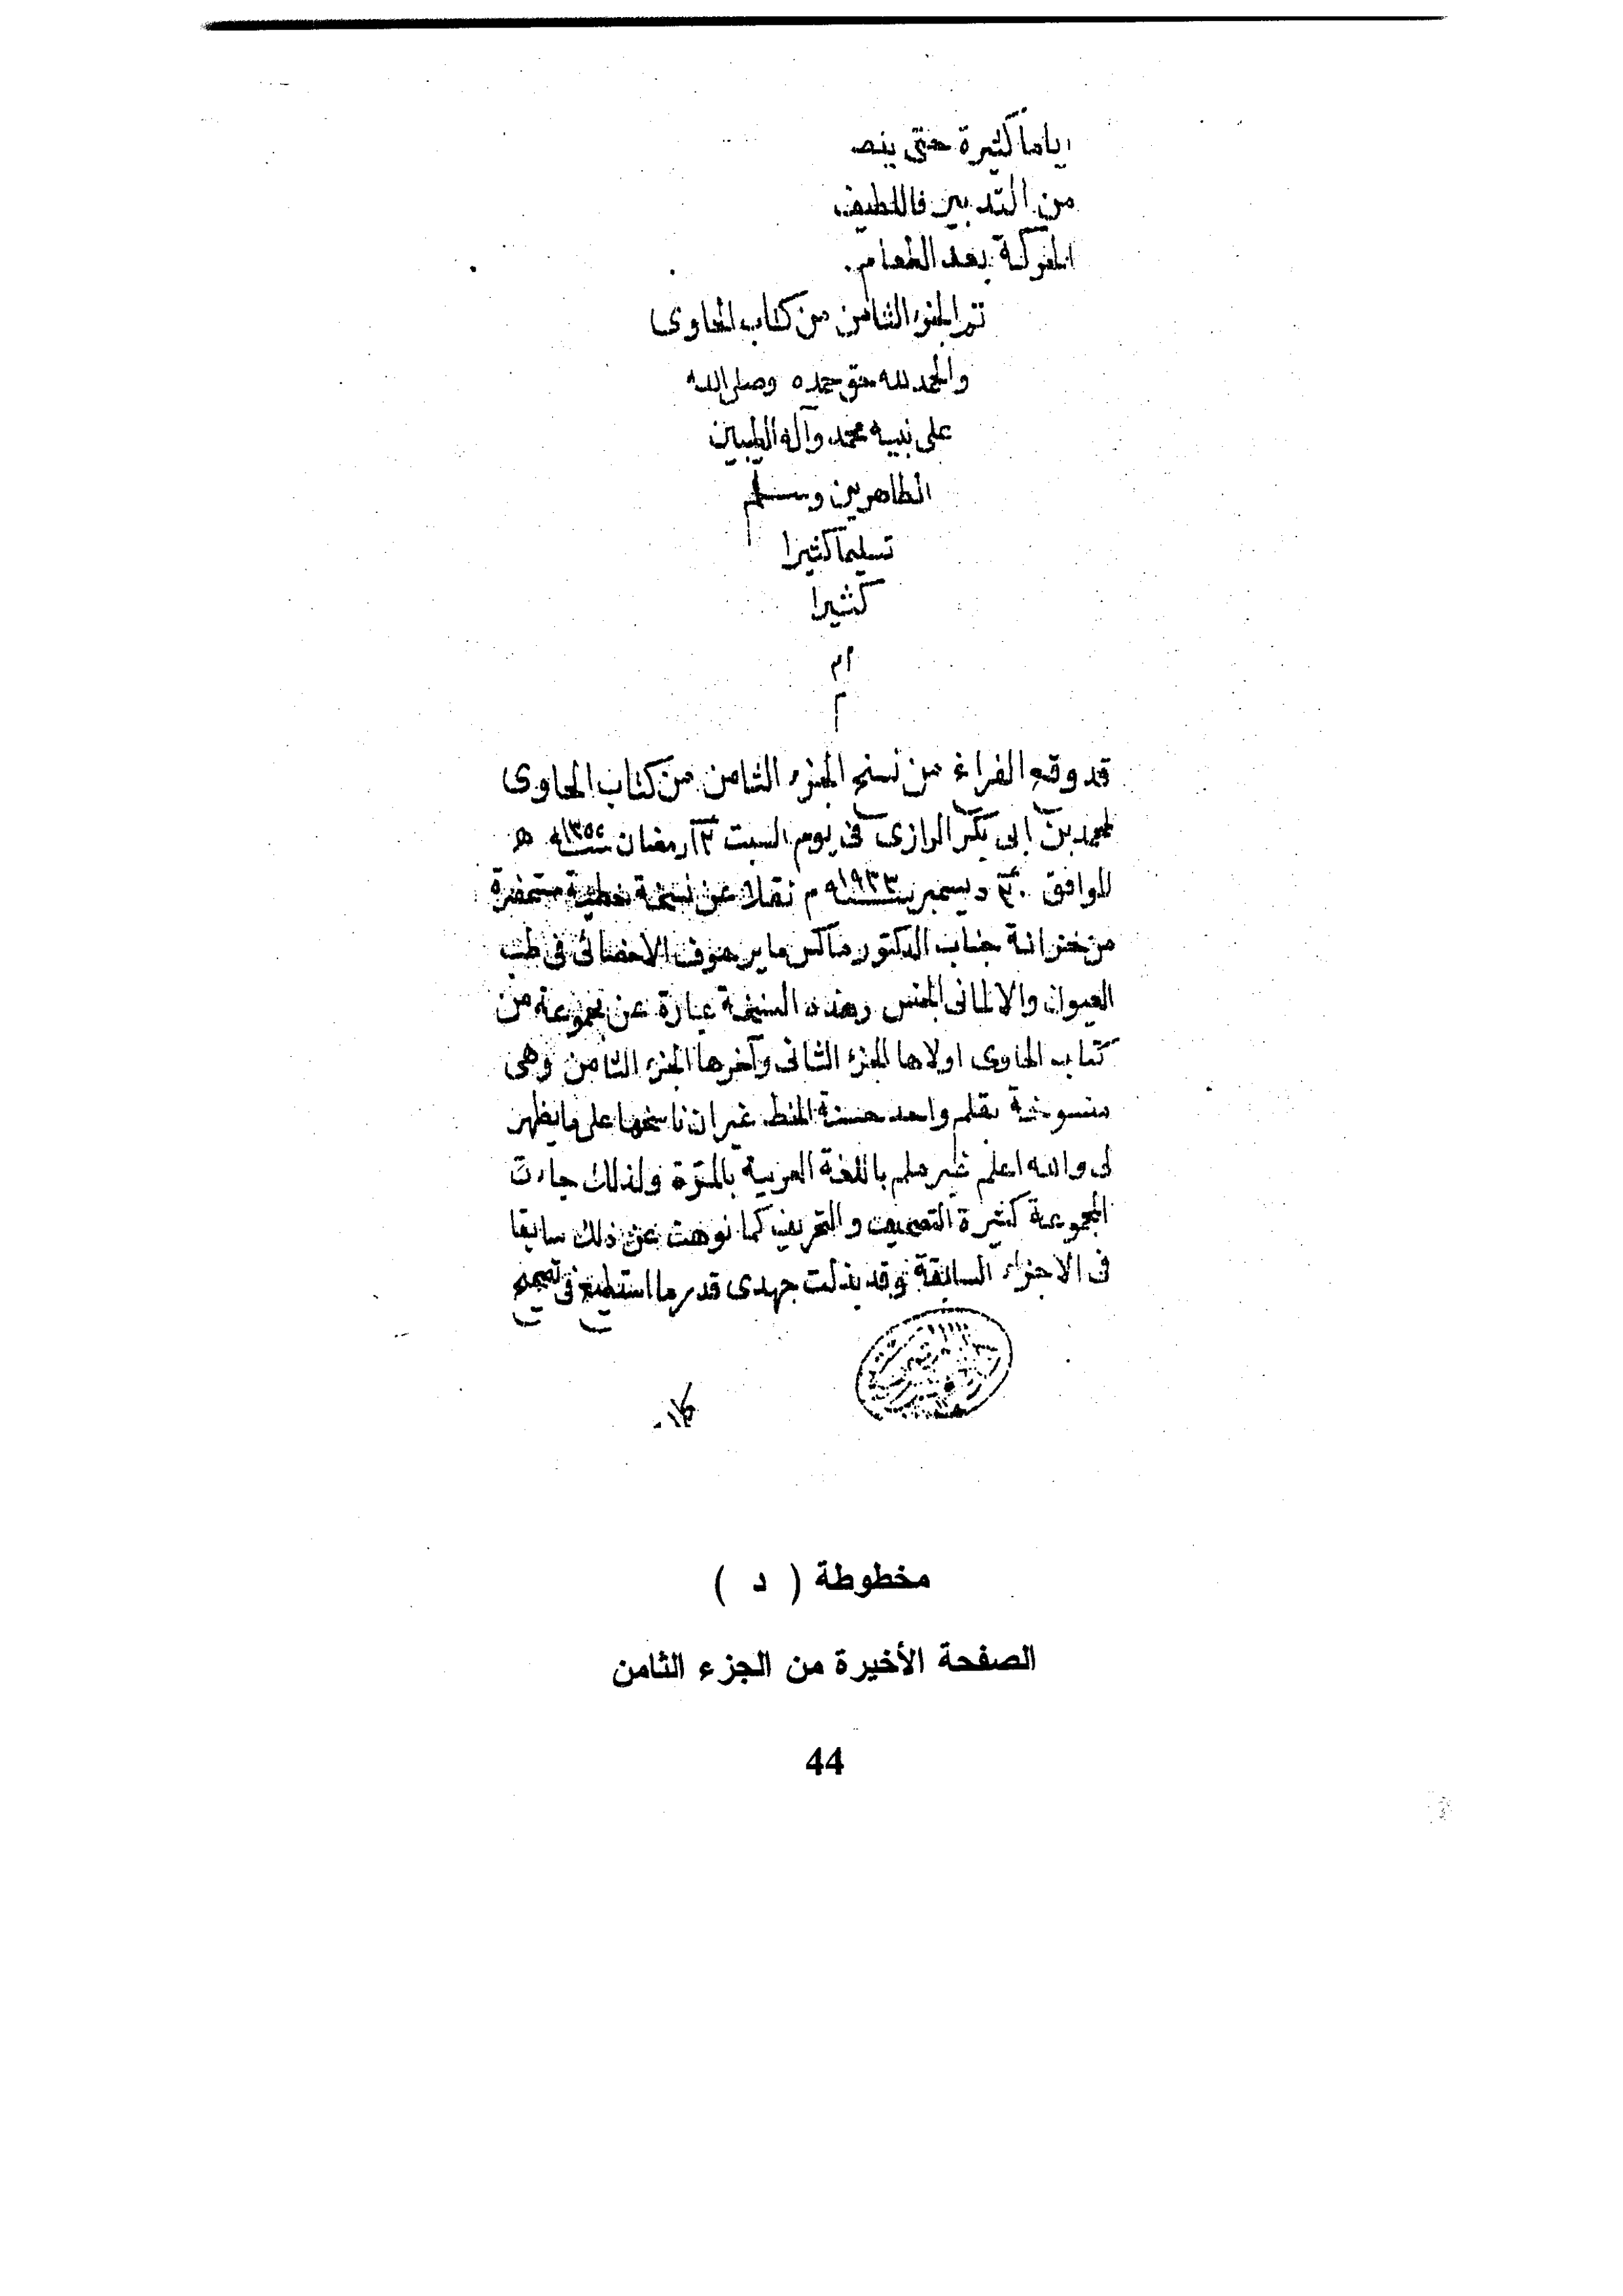 اياما كثيرة حتى ينصـ
من التدبير فاللطيف
الحركة بعد الطعام.
تم الجزء الثامن من كتاب الحاوى
والحمد لله حق حمده وصلى الله
على نبيه محمد وآله الطيبين
الطاهرين وسلم
تسليما كثيرا
كثيرا
ام
قد وقع الفراغ من نسخ الجزء الثامن من كتاب الحاوى
لمحمد بن ابى بكر الرازى فى يوم السبت رمضان سنة ١٣٥٢ ه
الموافق ٣٠ ديسمبر سنة ١٩٣٣ م نقلا عن نسخة خطية مستحضرة
من خزانة جناب الدكتور ماكس مايرهوف الاخصائى فى طب
العيون والالمانى الجنس وهذه النسخة عبارة عن مجموعة من
كتاب الحاوى اولاها الجزء الثانى وآخرها الجزء الثامن وهى
منسوخة بقلم واحد حسنة الخط غير ان ناسخها على ما يظهر
لى والله اعلم غير ملم باللغة العربية بالمرة ولذلك جاءت
المجموعة كثيرة التصحيف والتحريف كما نوهت عن ذلك سابقا
فى الاجزاء السابقة وقد بذلت جهدى قدر ما استطيع فى تصحيح
مخطوطة ( د )
الصفحة الأخيرة من الجزء الثامن
44